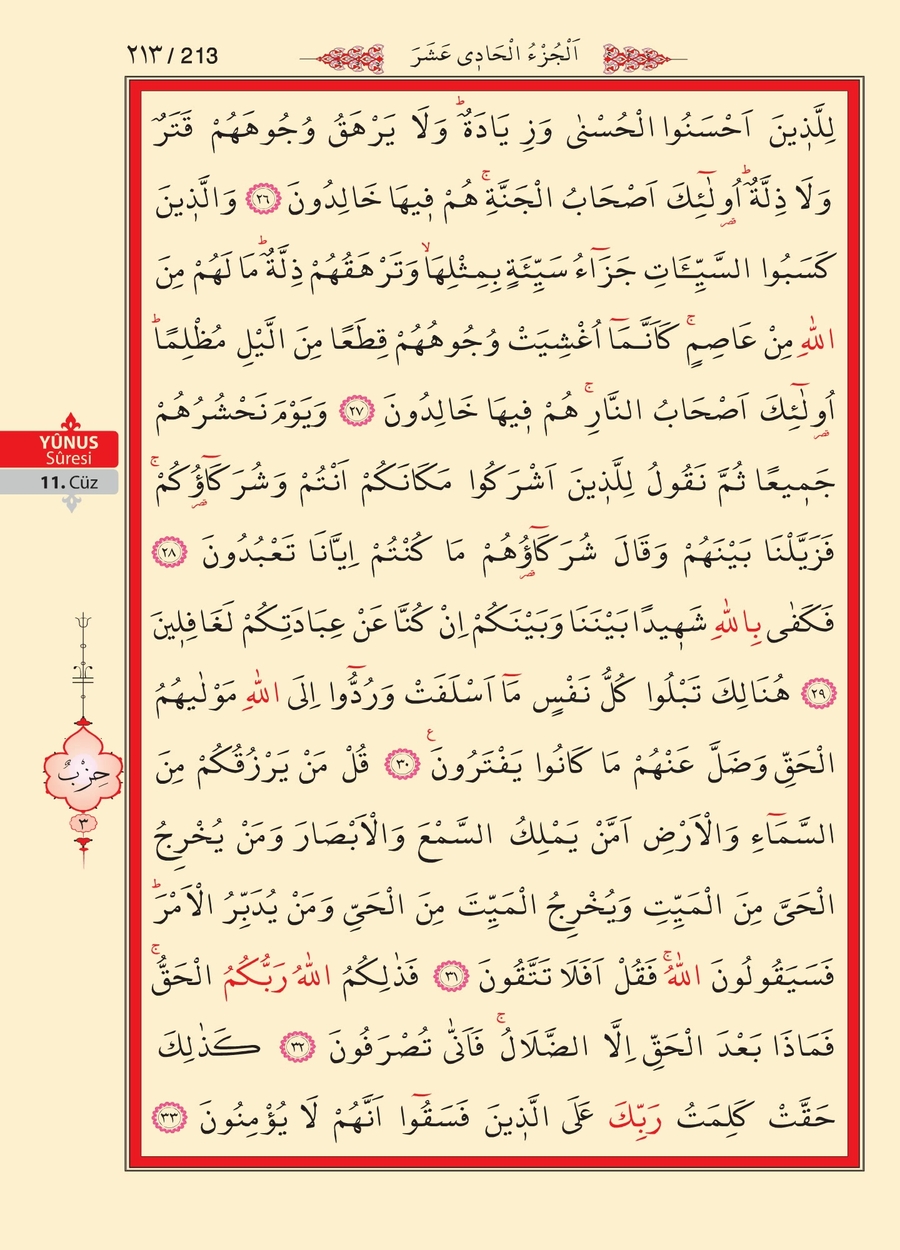 ٢١٣ / 213
اَلْجُزْءُ الْحَادِى عَشَرَ
لِلَّذ۪ينَ اَحْسَنُوا الْحُسْنٰى وَزِيَادَةٌۜ وَلَا يَرْهَقُ وُجُوهَهُمْ قَتَرٌ
وَلَا ذِلَّةٌۜ اُو۬لٰٓئِكَ اَصْحَابُ الْجَنَّةِۚ هُمْ ف۪يهَا خَالِدُونَ ٢٦ وَالَّذ۪ينَ
كَسَبُوا السَّيِّـَٔاتِ جَزَٓاءُ سَيِّئَةٍ بِمِثْلِهَاۙ وَتَرْهَقُهُمْ ذِلَّةٌۜ مَا لَهُمْ مِنَ
اللّٰهِ مِنْ عَاصِمٍۚ كَاَنَّمَٓا اُغْشِيَتْ وُجُوهُهُمْ قِطَعًا مِنَ الَّيْلِ مُظْلِمًاۜ
اُو۬لٰٓئِكَ اَصْحَابُ النَّارِۚ هُمْ ف۪يهَا خَالِدُونَ ٢٧ وَيَوْمَ نَحْشُرُهُمْ
جَم۪يعًا ثُمَّ نَقُولُ لِلَّذ۪ينَ اَشْرَكُوا مَكَانَكُمْ اَنْتُمْ وَشُرَكَٓاؤُ۬كُمْۚ
فَزَيَّلْنَا بَيْنَهُمْ وَقَالَ شُرَكَٓاؤُ۬هُمْ مَا كُنْتُمْ اِيَّانَا تَعْبُدُونَ ٢٨
فَكَفٰى بِاللّٰهِ شَه۪يدًا بَيْنَنَا وَبَيْنَكُمْ اِنْ كُنَّا عَنْ عِبَادَتِكُمْ لَغَافِل۪ينَ
٢٩ هُنَالِكَ تَبْلُوا كُلُّ نَفْسٍ مَٓا اَسْلَفَتْ وَرُدُّٓوا اِلَى اللّٰهِ مَوْلٰيهُمُ
الْحَقِّ وَضَلَّ عَنْهُمْ مَا كَانُوا يَفْتَرُونَ ع ٣٠ قُلْ مَنْ يَرْزُقُكُمْ مِنَ
السَّمَٓاءِ وَالْاَرْضِ اَمَّنْ يَمْلِكُ السَّمْعَ وَالْاَبْصَارَ وَمَنْ يُخْرِجُ
الْحَيَّ مِنَ الْمَيِّتِ وَيُخْرِجُ الْمَيِّتَ مِنَ الْحَيِّ وَمَنْ يُدَبِّرُ الْاَمْرَۜ
فَسَيَقُولُونَ اللّٰهُۚ فَقُلْ اَفَلَا تَتَّقُونَ ٣١ فَذٰلِكُمُ اللّٰهُ رَبُّكُمُ الْحَقُّۚ
فَمَاذَا بَعْدَ الْحَقِّ اِلَّا الضَّلَالُۚ فَاَنّٰى تُصْرَفُونَ ٣٢ كَذٰلِكَ
حَقَّتْ كَلِمَتُ رَبِّكَ عَلَى الَّذ۪ينَ فَسَقُٓوا اَنَّهُمْ لَا يُؤْمِنُونَ ٣٣
YÛNUS
Sûresi
11. Cüz
حِزْبٌ
٣